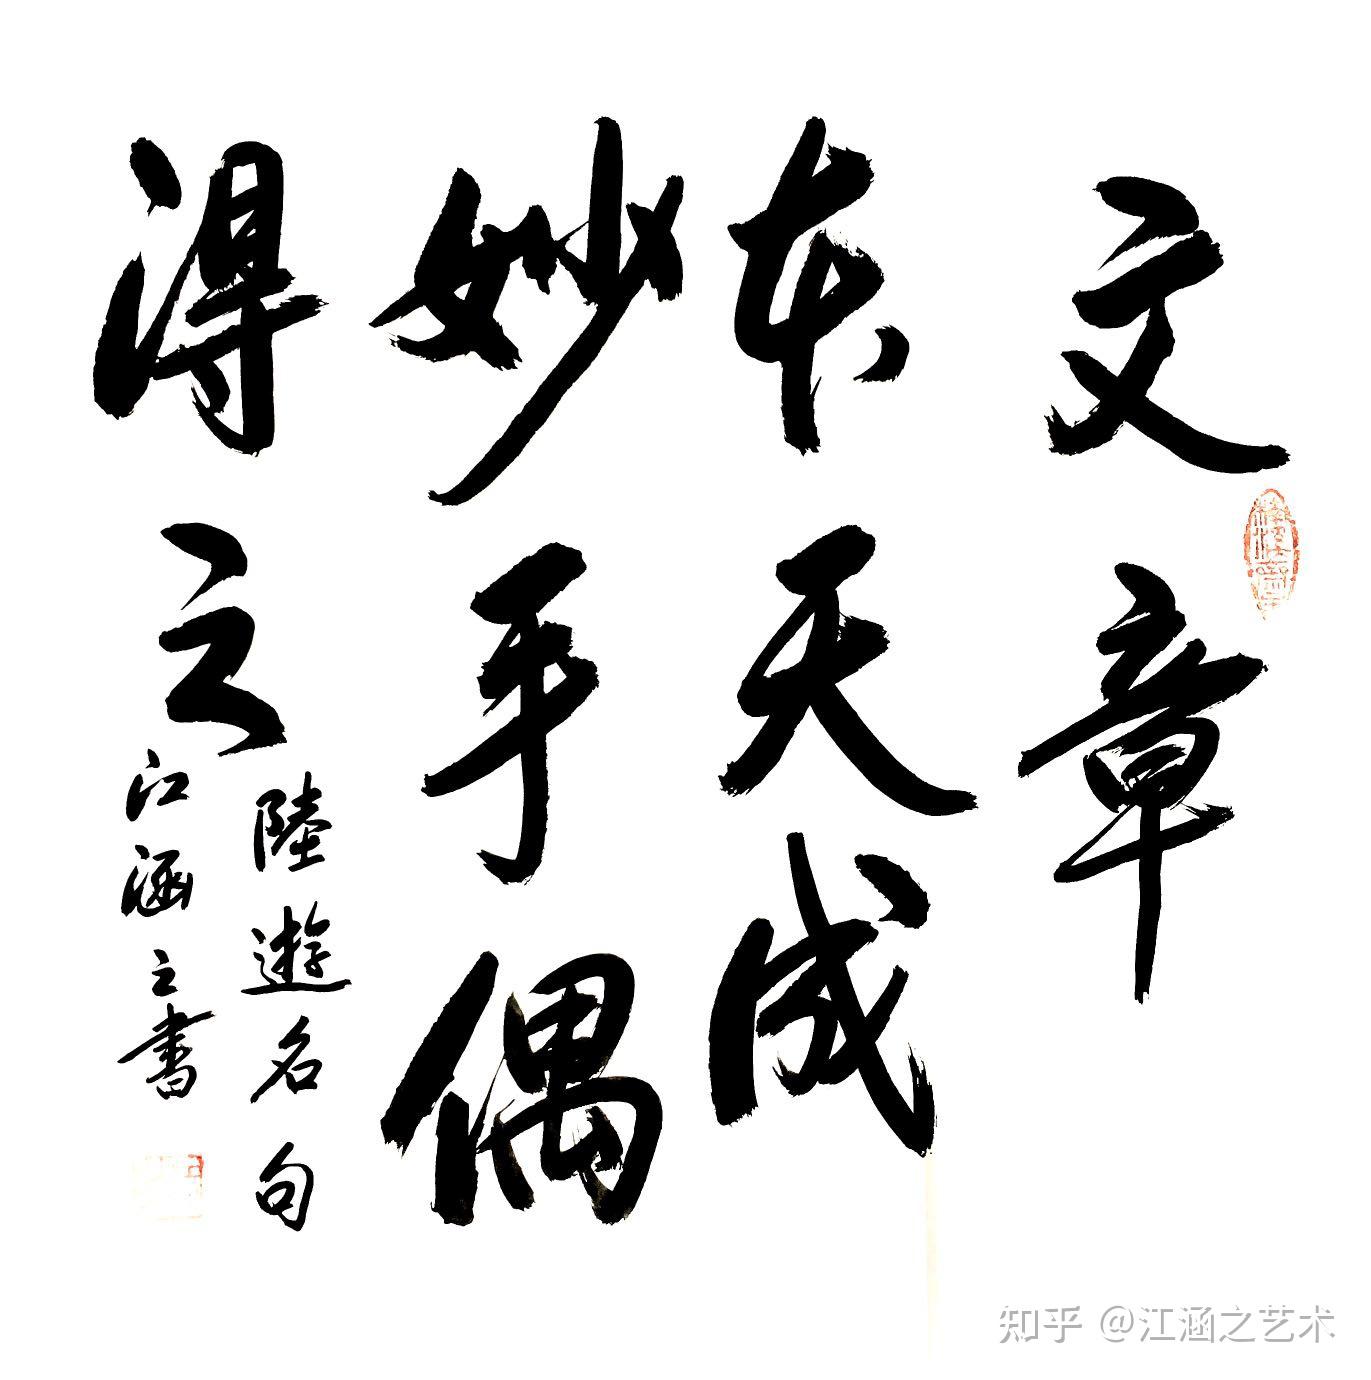 文章
本天成
妙手偶
得之
陸遊名句
江涵之書
知乎 @江涵之艺术